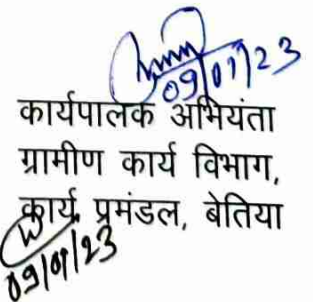 09/01/23
कार्यपालक अभियंता
ग्रामीण कार्य विभाग,
कार्य प्रमंडल, बेतिया
09/01/23